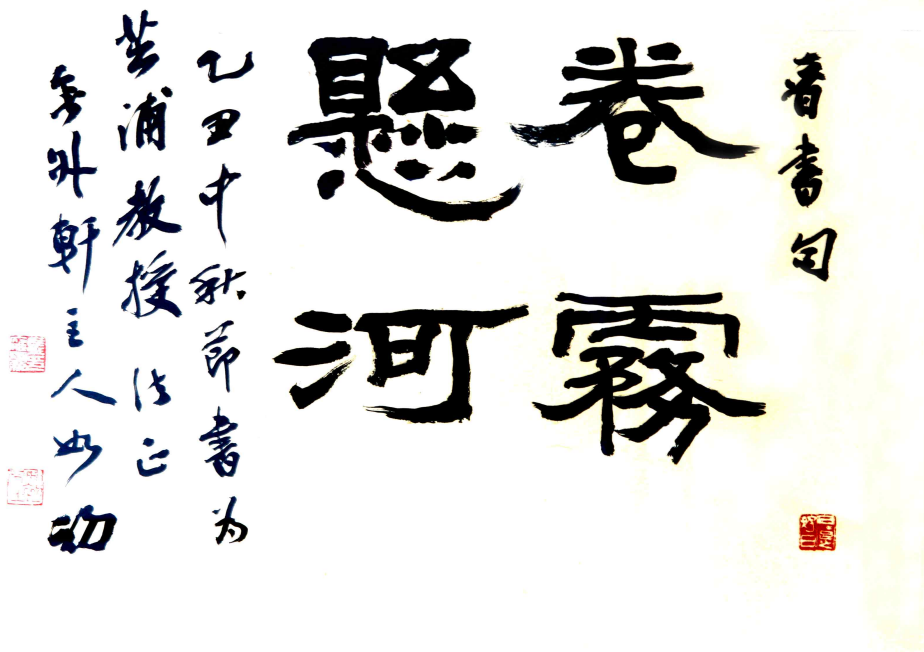 晉書句
卷霧
懸河
乙丑中秋節書為
浦教授 法正
外軒主人如